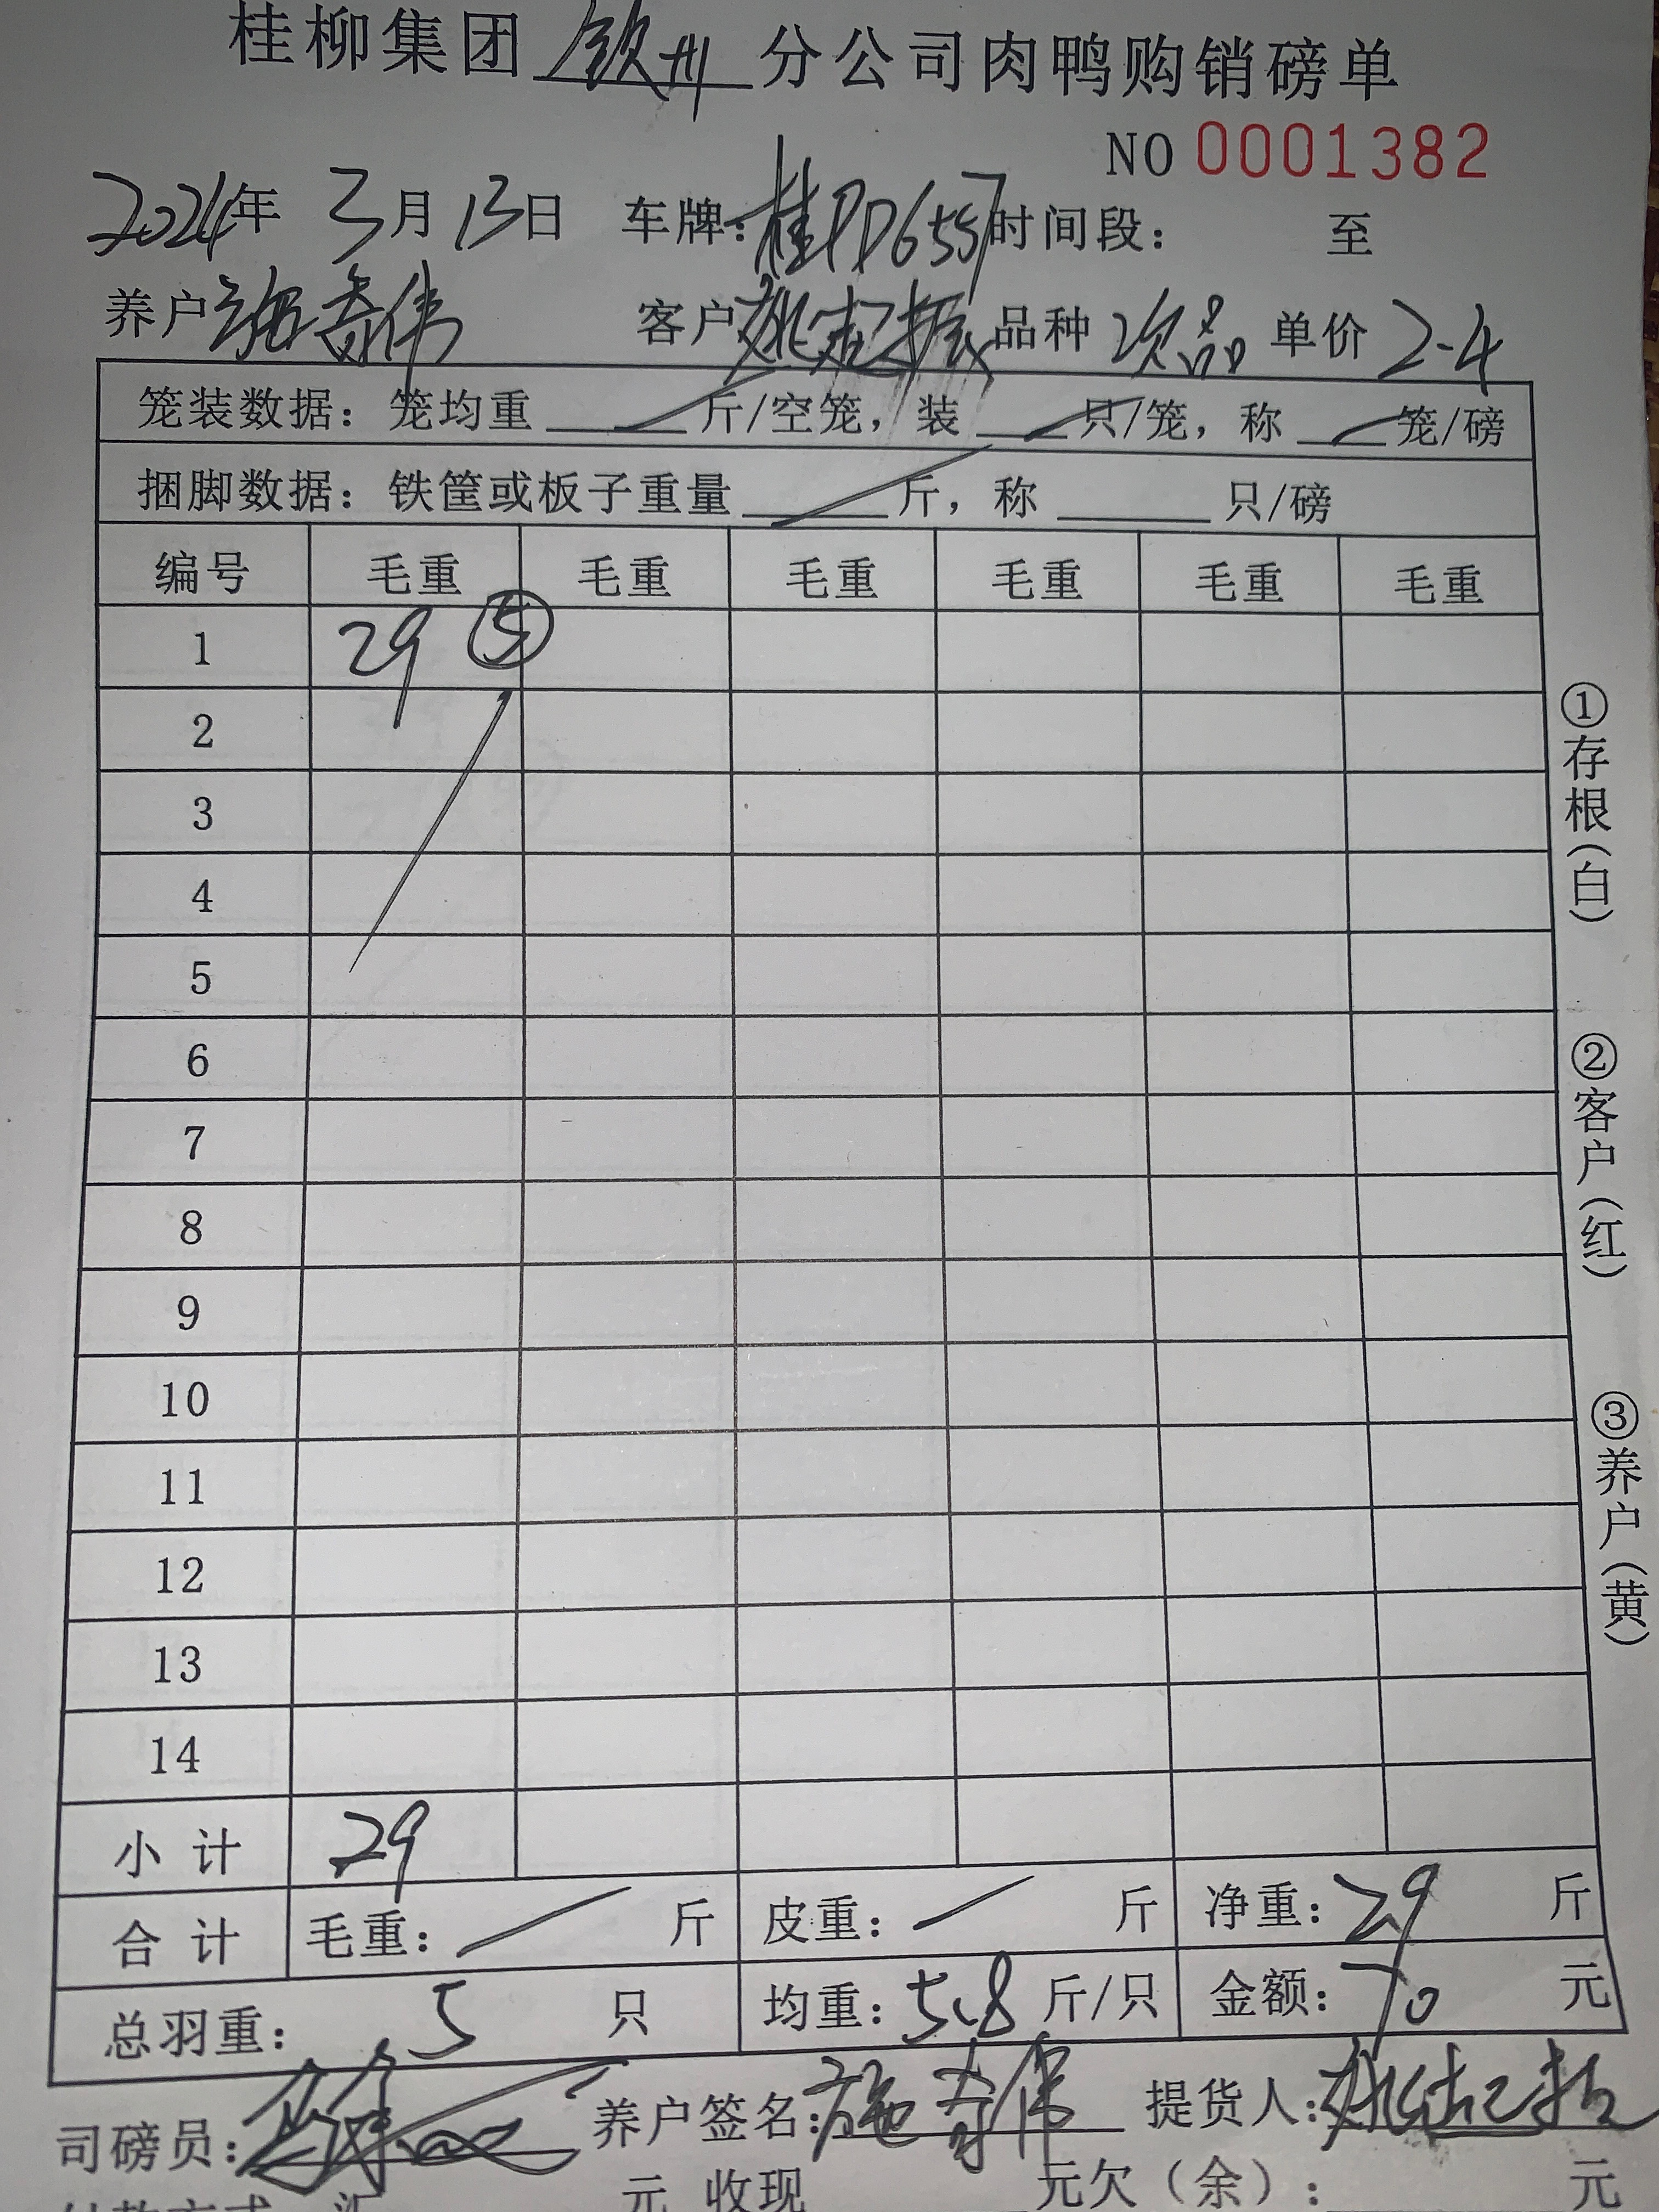 桂柳集团 钦州 分公司肉鸭购销磅单
NO 0001382
2024年 3月 13日 车牌:桂PD6557时间段: 至
养户 施奇伟 客户 姚起振 品种 次品 单价 2.4
笼装数据: 笼均重 斤/空笼, 装 只/笼, 称 笼/磅
捆脚数据: 铁筐或板子重量 斤, 称 只/磅
编号 毛重 毛重 毛重 毛重 毛重 毛重
1 29 ⑤
2
3
4
5
6
7
8
9
10
11
12
13
14
小 计 29
合 计 毛重: 斤 皮重: 斤 净重: 29 斤
总羽重: 5 只 均重: 5.8 斤/只 金额: 70 元
司磅员: 养户签名: 施奇伟 提货人: 姚起振
付款方式 汇 元 收现 元欠(余): 元
①存根(白)
②客户(红)
③养户(黄)